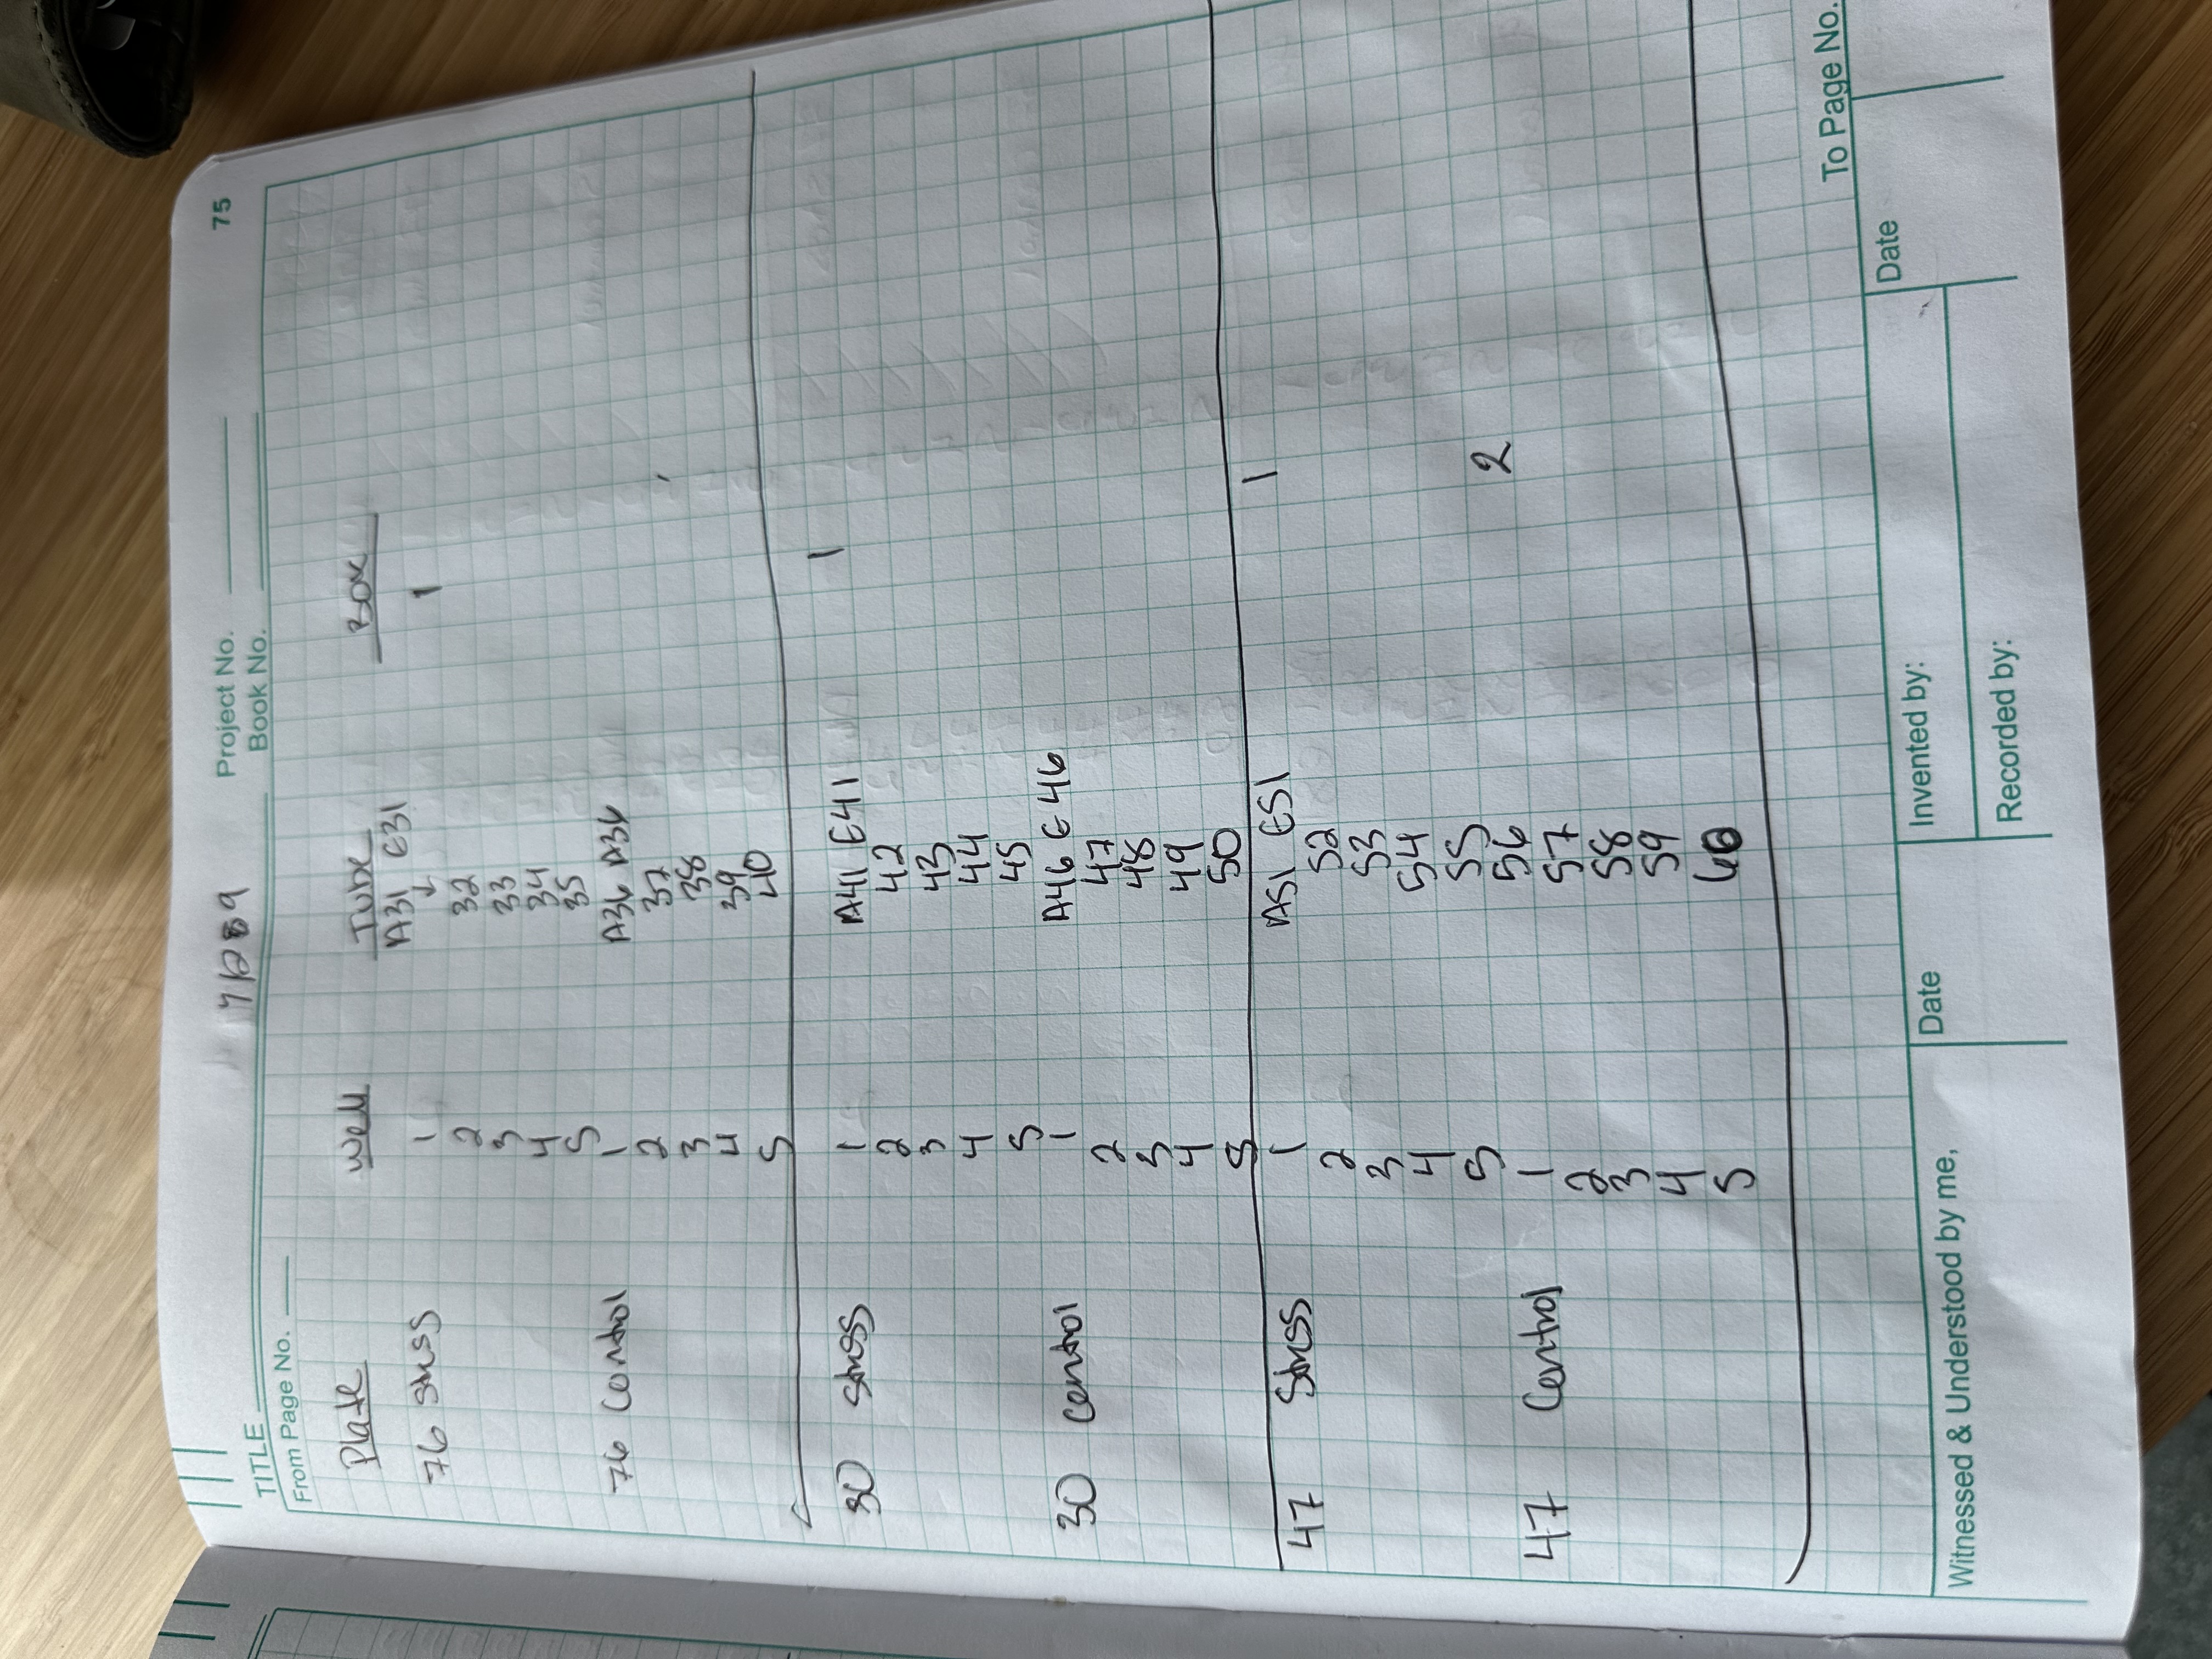 75
Project No.
Book No.
TITLE
From Page No.
Plate Well Tube Box
76 Stress 1 A31 E31 1
2 32
3 33
4 34
5 35
76 Control 1 A36 A36
2 37
3 38
4 39
5 40
30 Stress 1 A41 E41 1
2 42
3 43
4 44
5 45
30 Control 1 A46 E46
2 47
3 48
4 49
5 50
47 Stress 1 A51 E51 1
2 52
3 53
4 54
5 55
47 Control 1 56 2
2 57
3 58
4 59
5 60
To Page No.
Witnessed & Understood by me,
Date
Invented by:
Date
Recorded by: